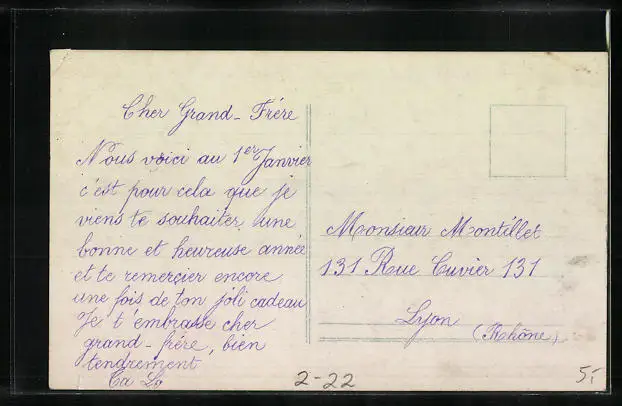 Cher Grand-Frére
Nous voici au 1er Janvier
c'est pour cela que je
viens te souhaiter une
bonne et heureuse année
et te remerçier encore
une fois de ton joli cadeau
Je t'embrasse cher
grand-frére, bien
tendrement
Ta
Monsieur Montillet
131 Rue Cuvier 131
Lyon
(Rhône)
2-22
5,-